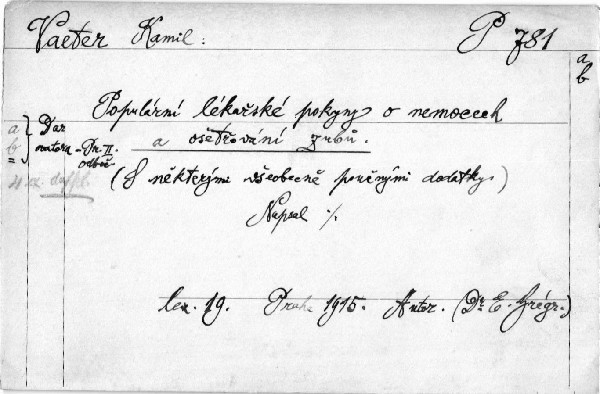 Vaeter Kamil: P 781
a
b
Populární lékařské pokyny o nemocech
a ošetřování zubů.
a } Dar
b autora - Du. II.
odbě
4 ex.
(S některými všeobecně poučnými dodatky)
Napsal ./.
lex. 19. Praha 1915. Autor. (Dr. E. Grégr.)